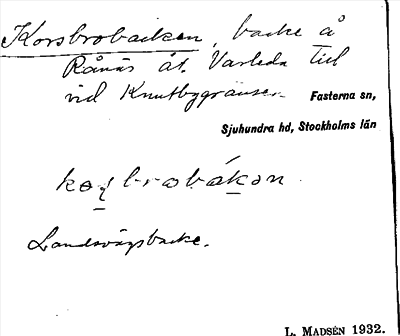 Korsbrobacken, backe å
Rånäs ät. Varleda till
vid Knutbygränsen. Fasterna sn,
Sjuhundra hd, Stockholms län
koʂbrobákən
Landsvägsbacke.
L. MADSÉN 1932.